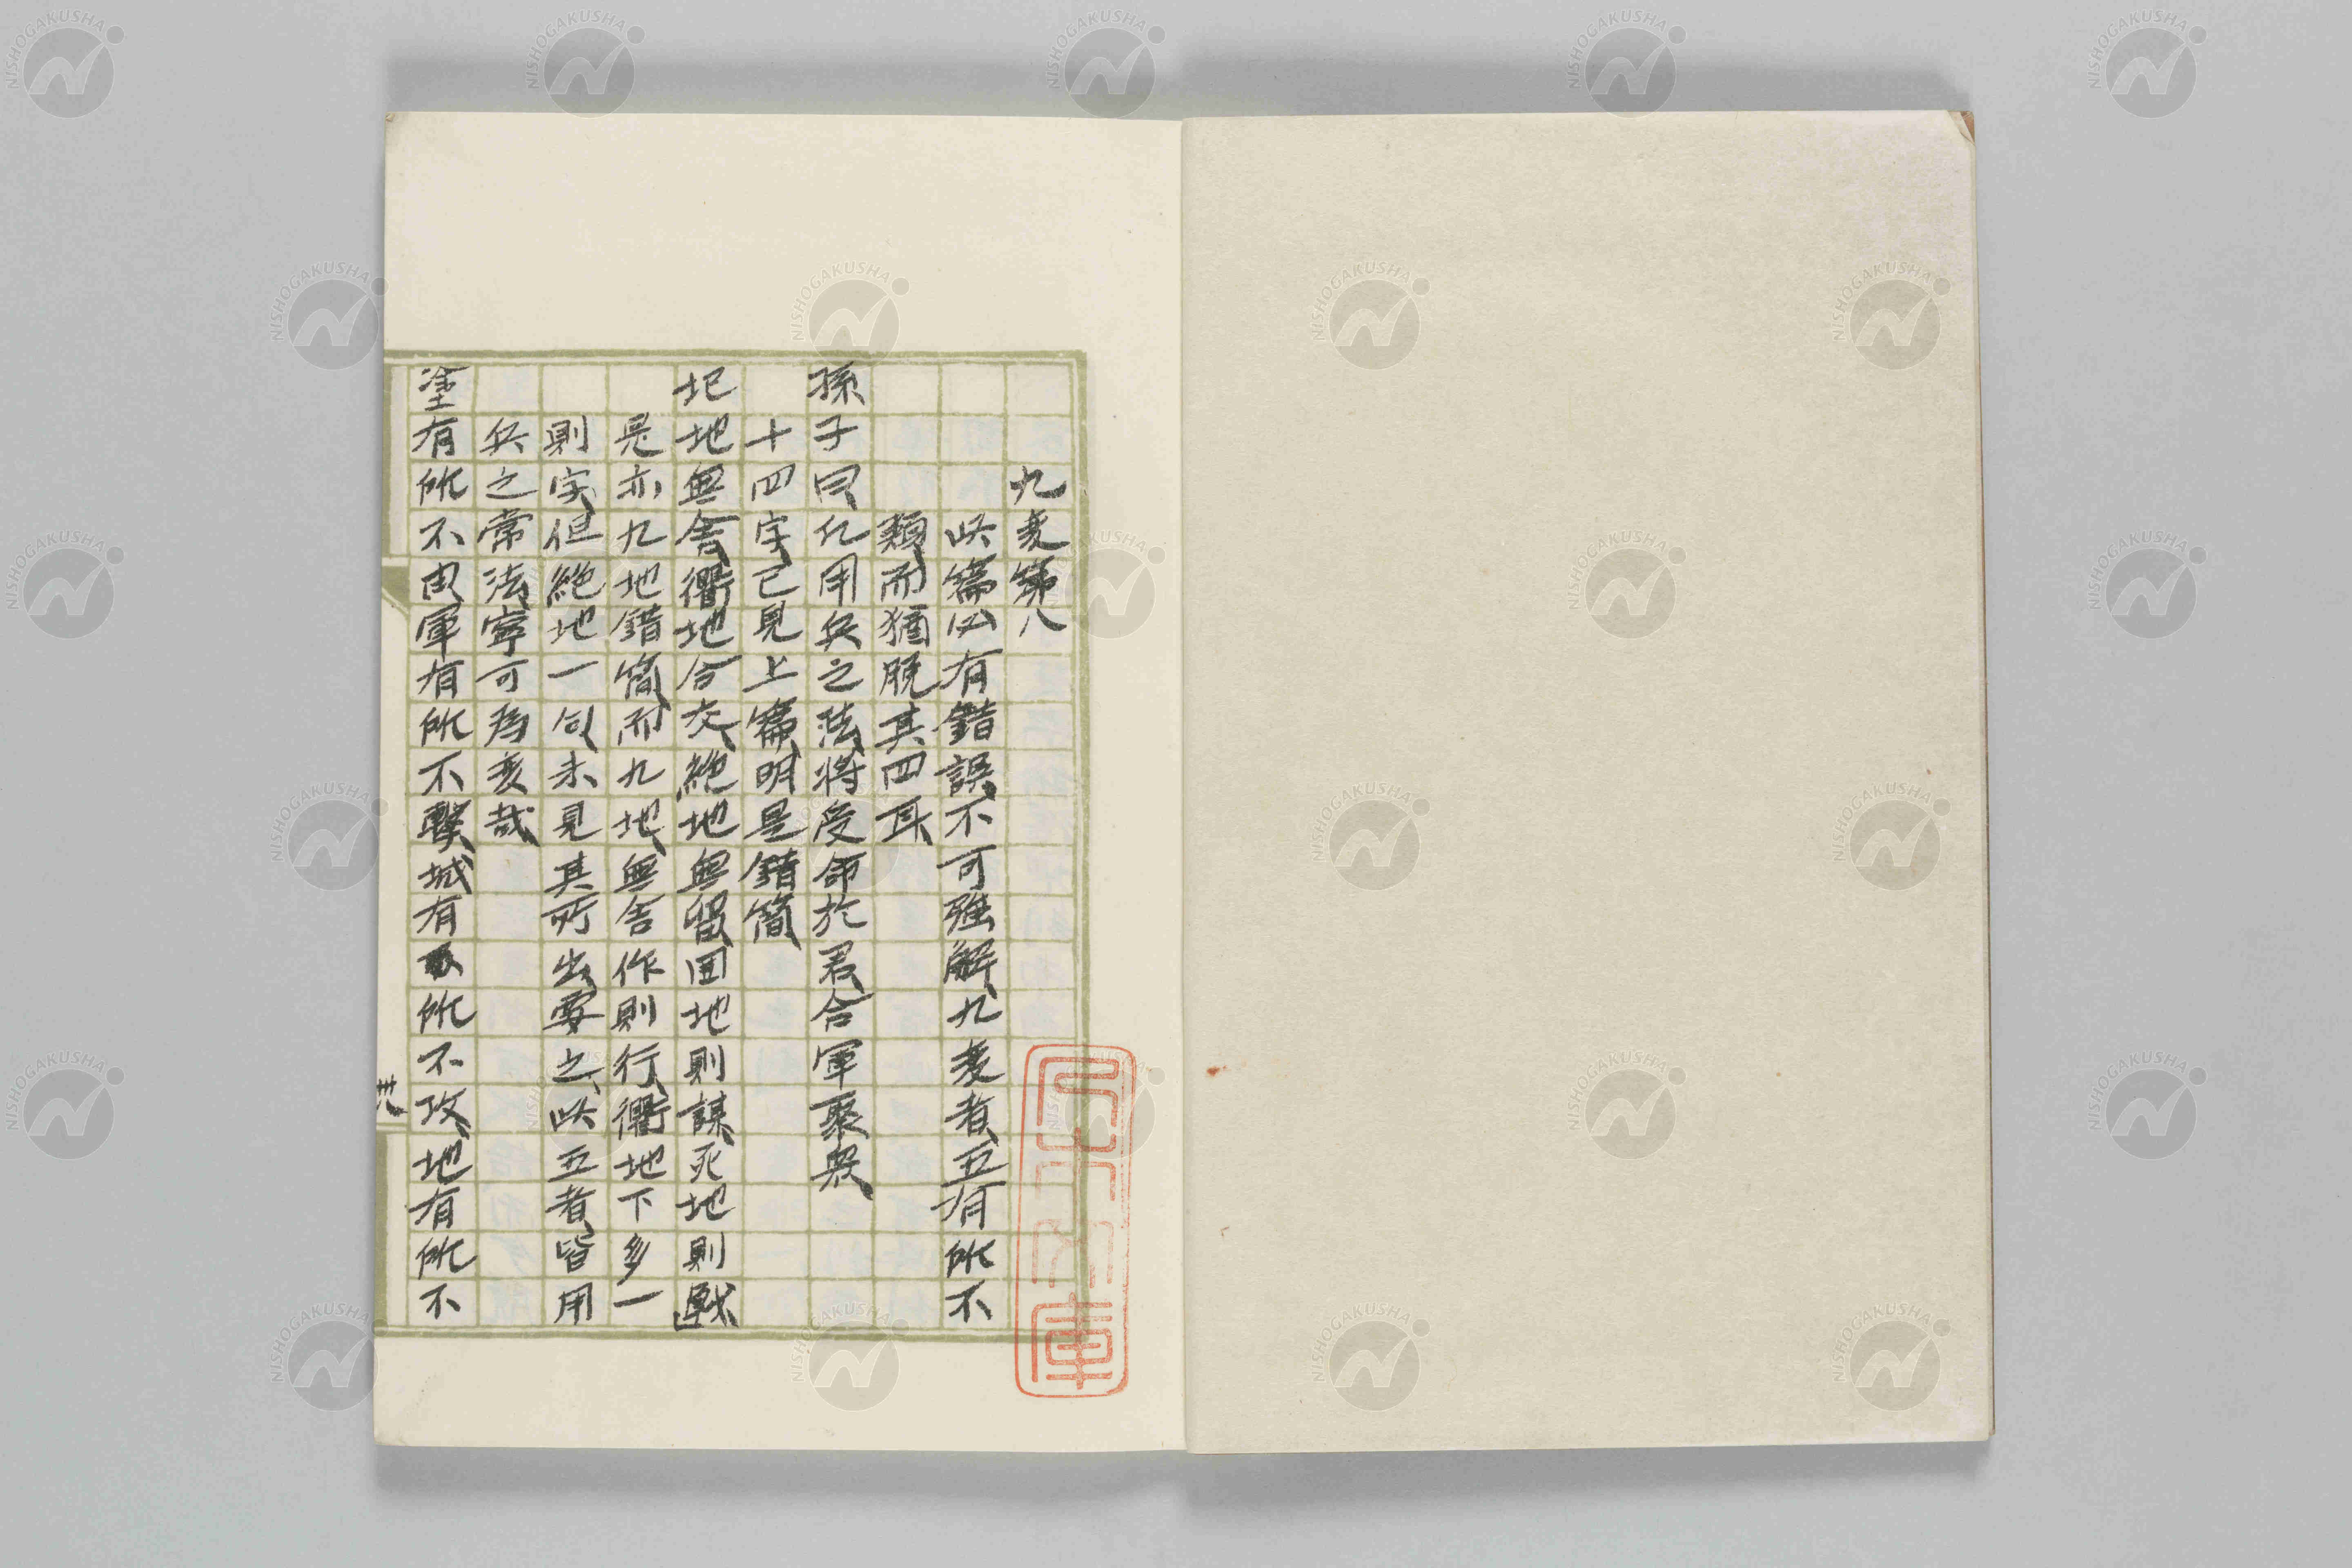 九変第八
此篇必有錯誤不可強解九変者五有所不
類而猶脱其四耳
孫子曰凡用兵之法将受命於君合軍聚衆
十四字已見上篇明是錯簡
圮地無舎衢地合交絶地無留囲地則謀死地則戦
是亦九地錯簡而九地無舎作則行衢地下多一
則字但絶地一句未見其所出要之此五者皆用
兵之常法寧可為変哉
塗有所不由軍有所不撃城有所不攻地有所不